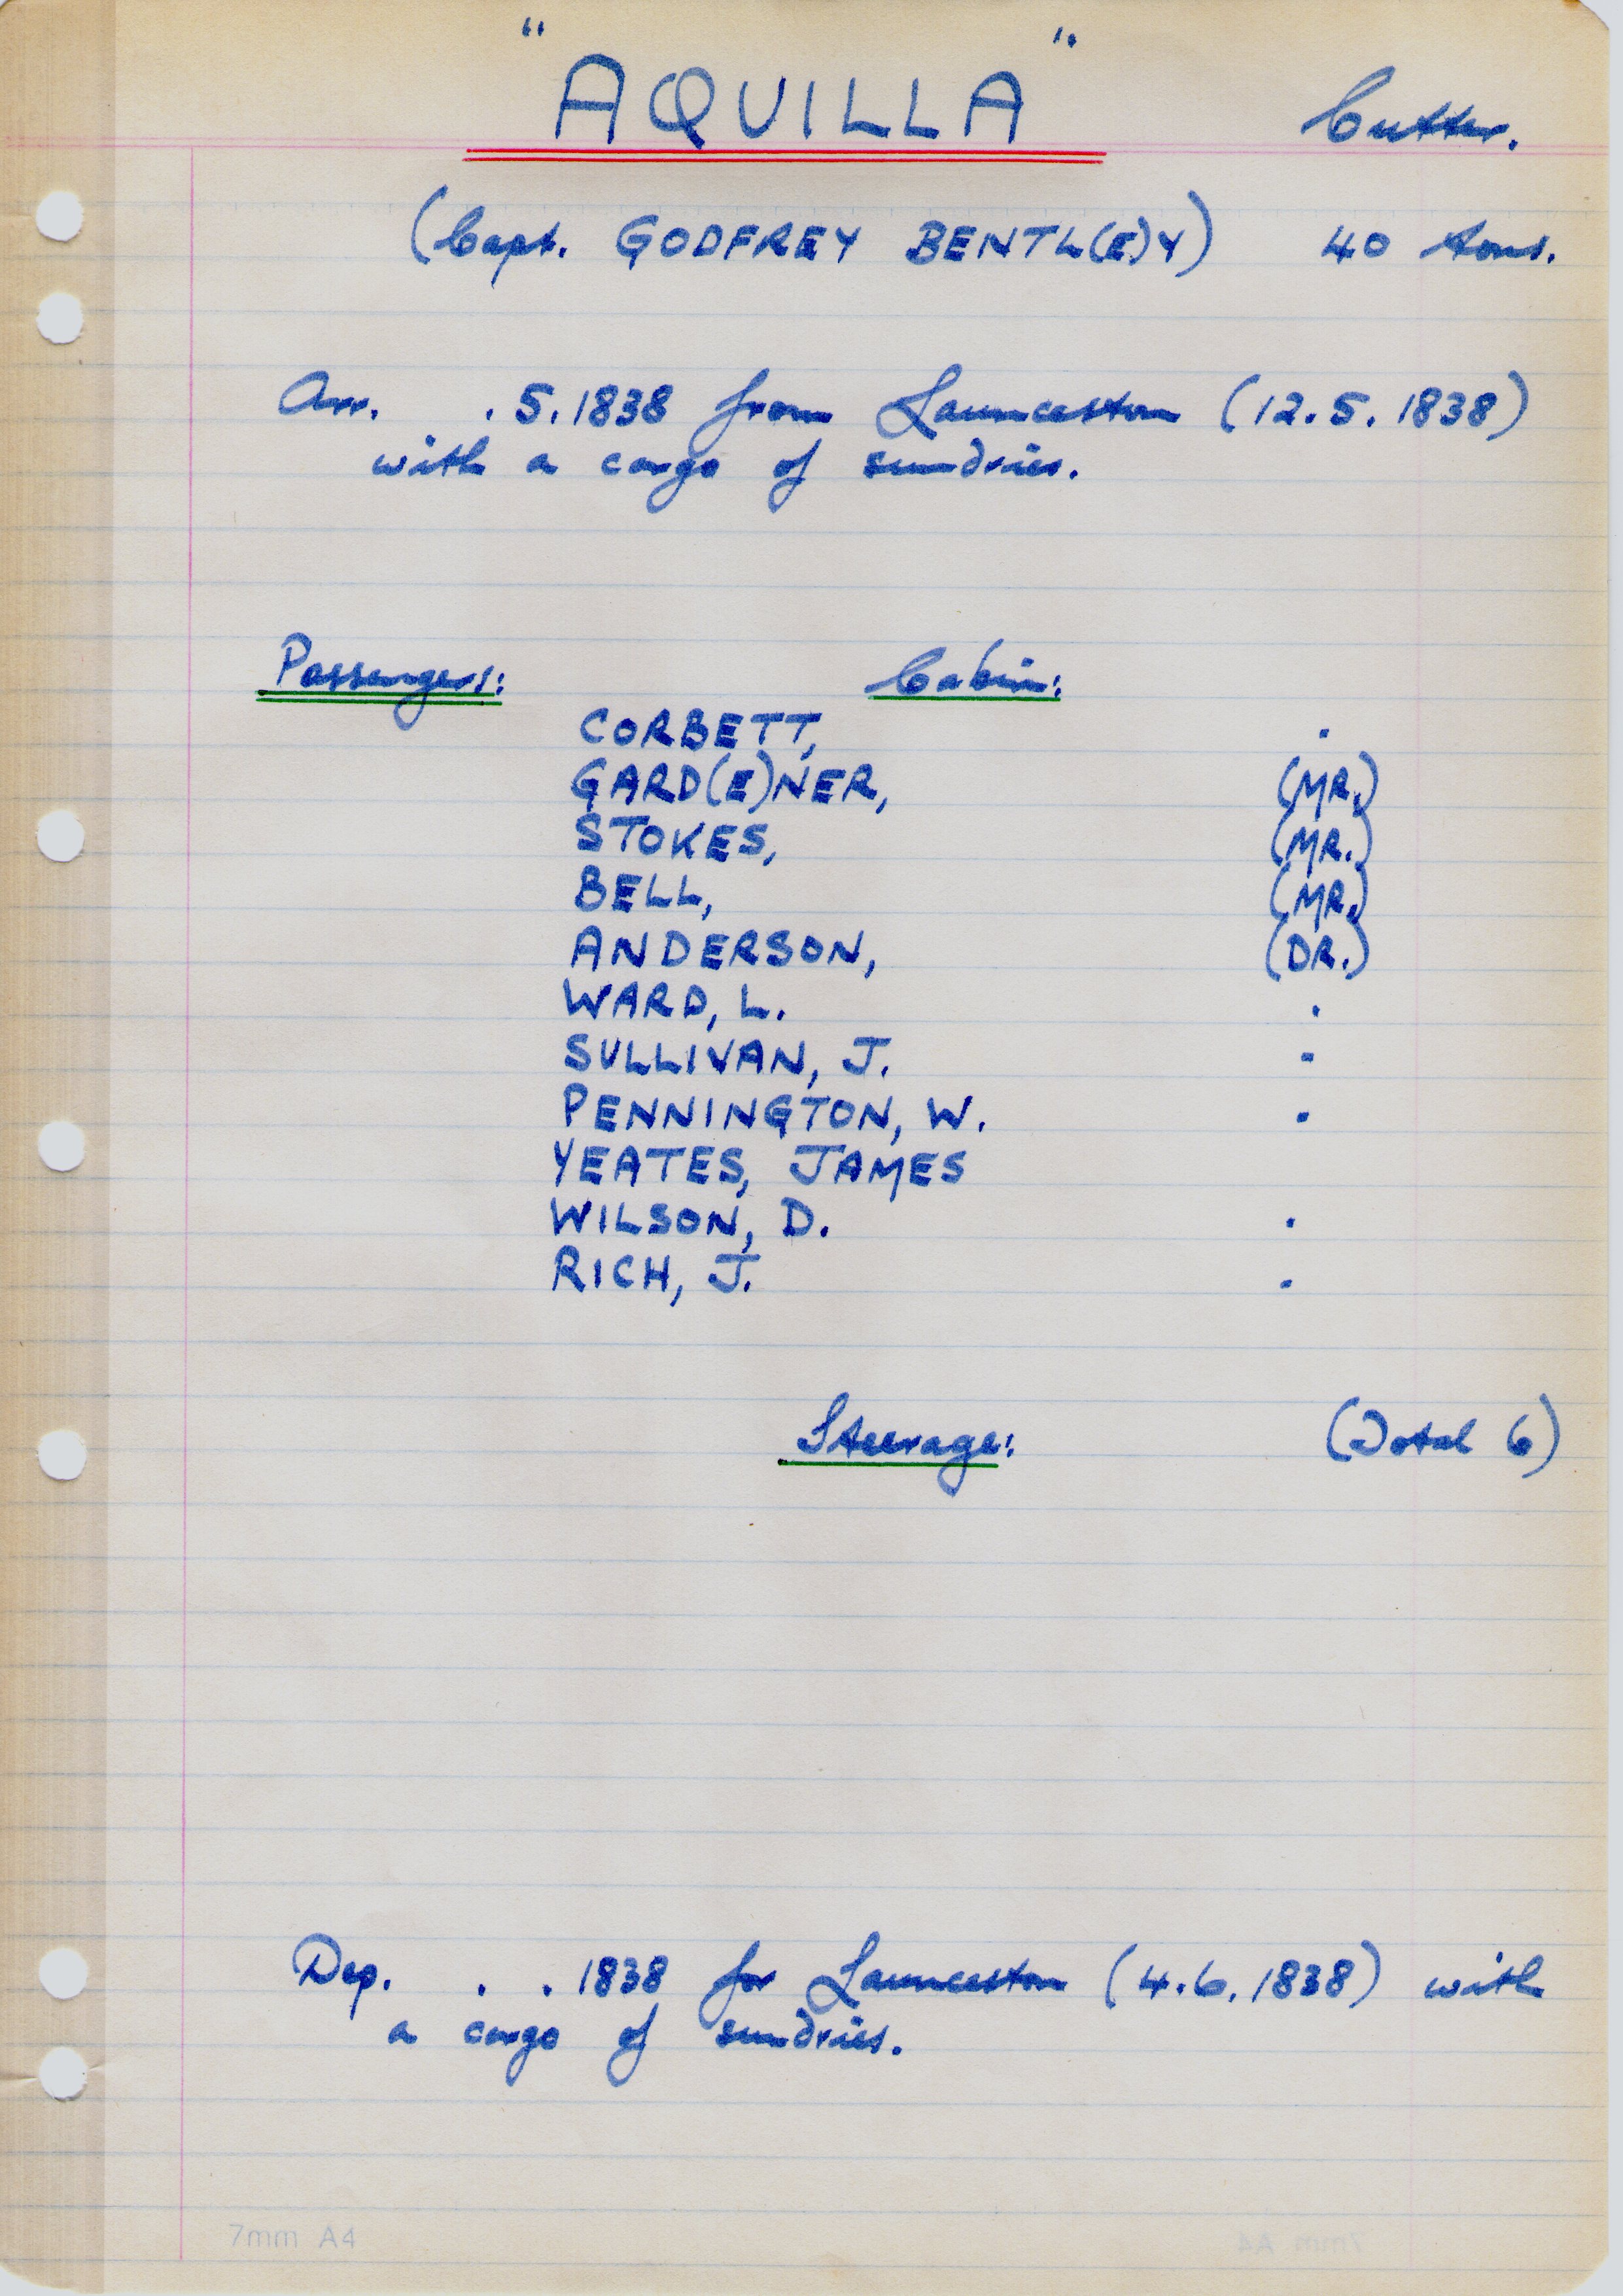 "AQUILLA" Cutter.
(Capt. GODFREY BENTL(E)Y) 40 tons.
Arr. . 5. 1838 from Launceston (12. 5. 1838)
with a cargo of sundries.
Passengers: Cabin:
CORBETT, .
GARD(E)NER, (MR.)
STOKES, (MR.)
BELL, (MR.)
ANDERSON, (DR.)
WARD, L. .
SULLIVAN, J. .
PENNINGTON, W. .
YEATES, JAMES
WILSON, D. .
RICH, J. .
Steerage: (Total 6)
Dep. . . 1838 for Launceston (4. 6. 1838) with
a cargo of sundries.
7mm A4